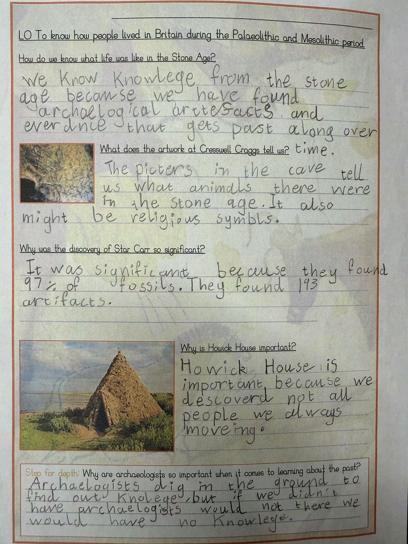 LO To know how people lived in Britain during the Palaeolithic and Mesolithic period
How do we know what life was like in the Stone Age?
We Know Knowlege from the stone
age because we have found
archaelogical arttefacts and
everdnce that gets past along over
time.
What does the artwork at Cresswell Craggs tell us?
The picters in the cave tell
us what animals there were
in the stone age. It also
might be religious symbls.
Why was the discovery of Star Carr so significant?
It was significant because they found
97% of fossils. They found 193
artifacts.
Why is Howick House important?
Howick House is
important because we
descoverd not all
people we always
moveing.
Step for depth: Why are archaeologists so important when it comes to learning about the past?
Archaelogists dig in the ground to
find out Knolege but if we didn't
have archaelogists would not there we
would have no Knowlege.